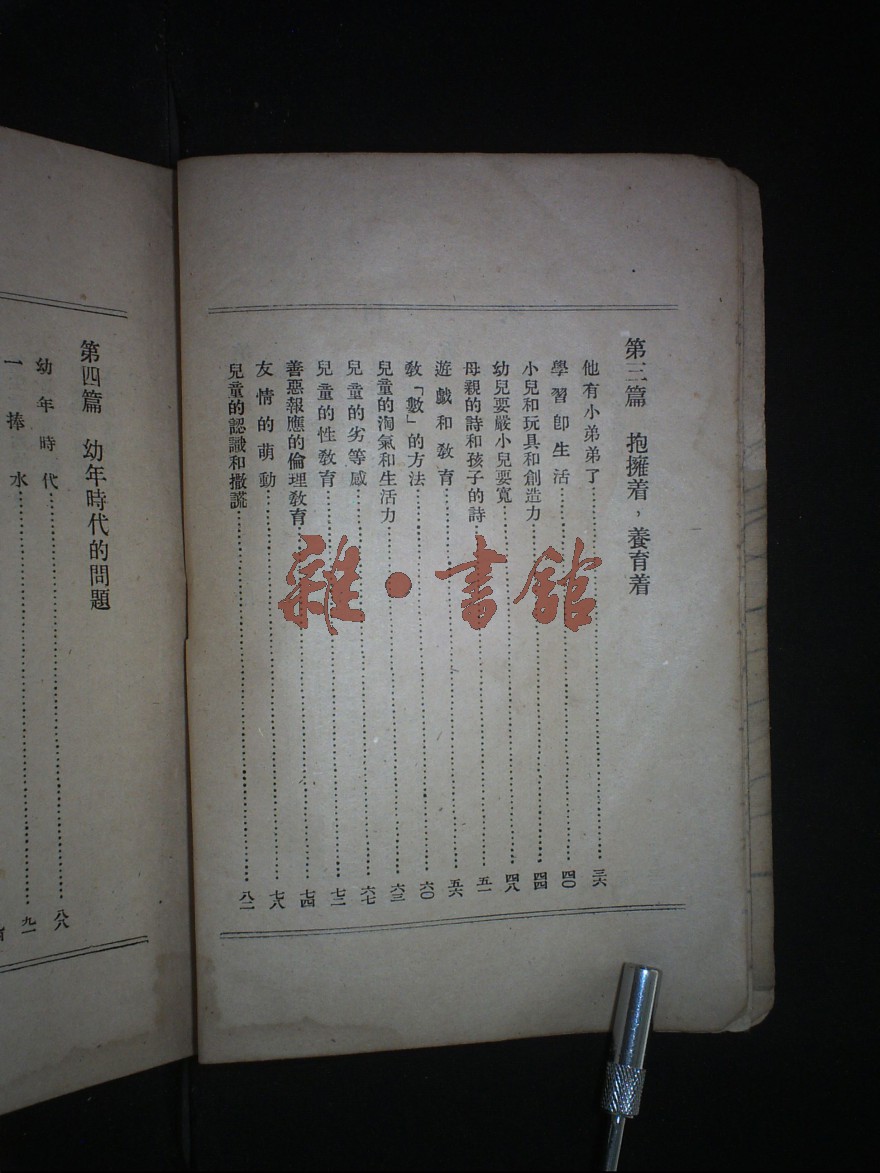 第三篇 抱擁着，養育着
他有小弟弟了……三六
學習卽生活……四〇
小兒和玩具和創造力……四四
幼兒要嚴小兒要寬……四八
母親的詩和孩子的詩……五一
遊戲和教育……五六
教「數」的方法……六〇
兒童的淘氣和生活力……六三
兒童的劣等感……六七
兒童的性教育……七二
善惡報應的倫理教育……七四
友情的萌動……七八
兒童的認識和撒謊……八二
第四篇 幼年時代的問題
幼年時代……八八
一捧水……九一
雜·書館